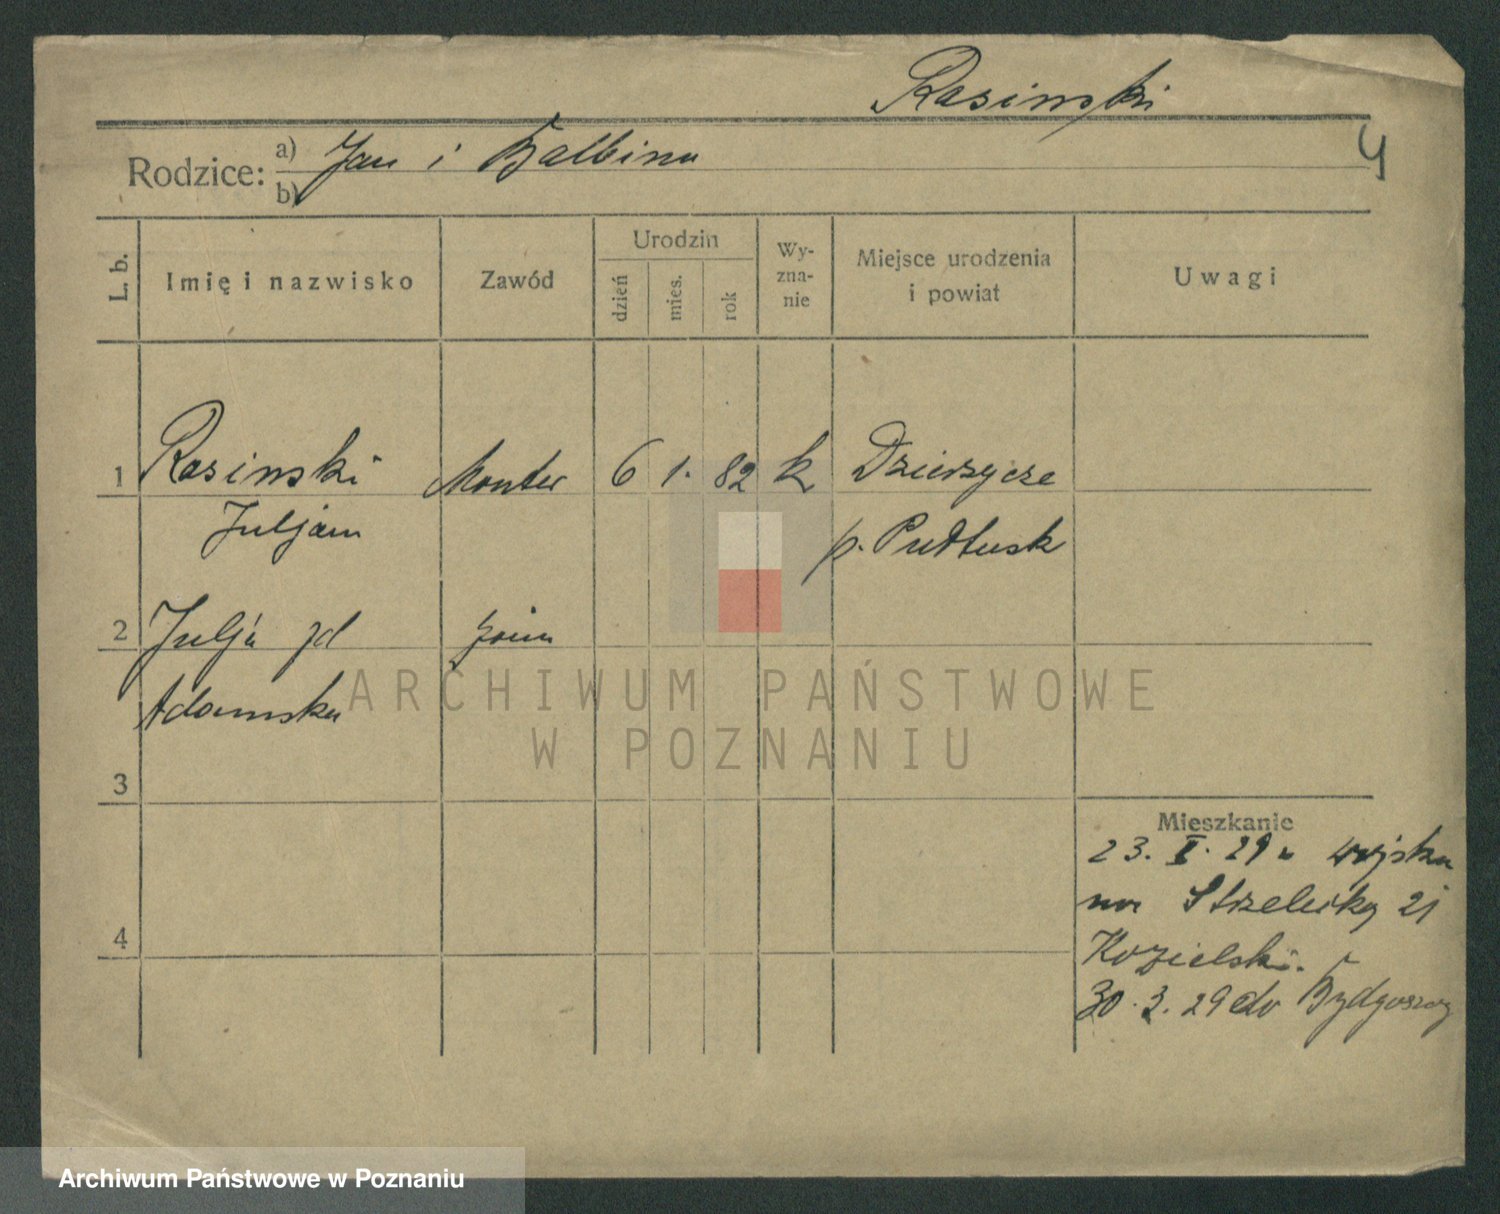 Rasinski
4
Rodzice: a) Jan i Balbina
b)
L. b.
Imię i nazwisko
Zawód
Urodzin
dzień
mies.
rok
Wy-
zna-
nie
Miejsce urodzenia
i powiat
Uwagi
1 Rasinski Monter 6 1. 82 k
Juljan p. Pułtusk
2 Julja zd
Adamska
3
4
Mieszkanie
23. 29
na Strzelecką 21
Kozielski.
30.3.29 do Bydgoszczy
ARCHIWUM PAŃSTWOWE
W POZNANIU
Archiwum Państwowe w Poznaniu